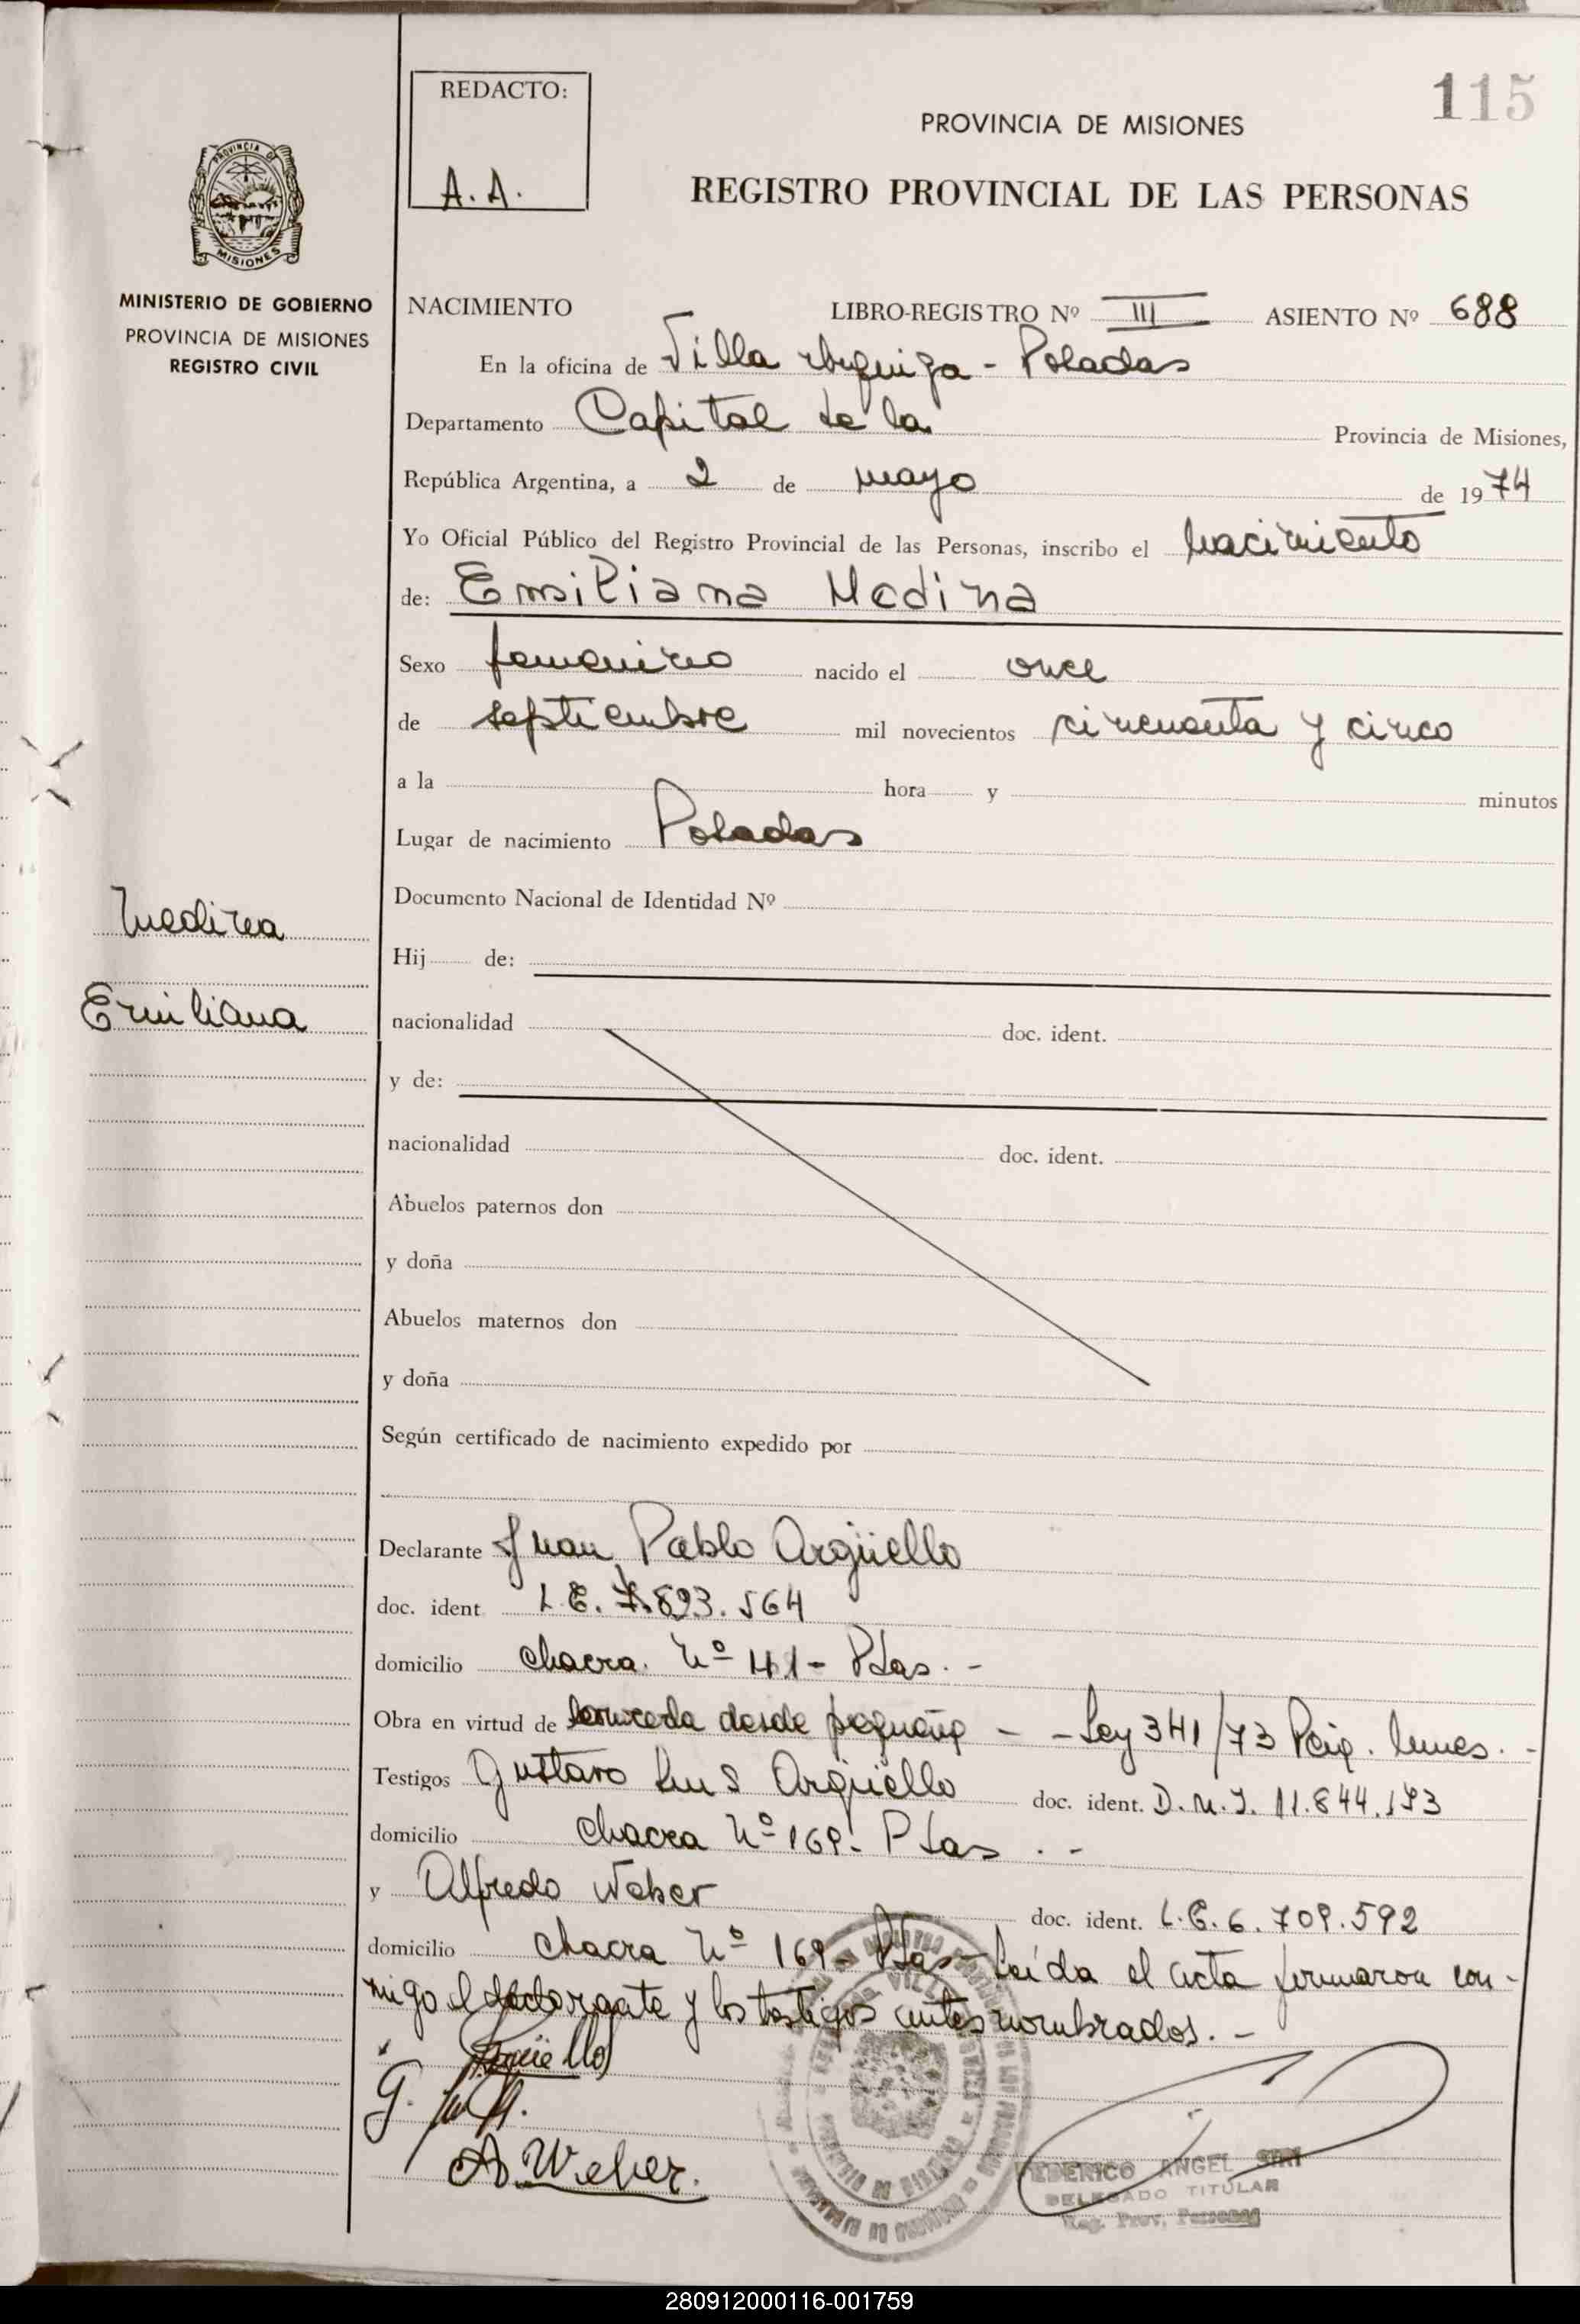 115
REDACTO:
A. A.
PROVINCIA DE MISIONES
REGISTRO PROVINCIAL DE LAS PERSONAS
PROVINCIA DE
MISIONES
MINISTERIO DE GOBIERNO
PROVINCIA DE MISIONES
REGISTRO CIVIL
NACIMIENTO LIBRO-REGISTRO Nº III ASIENTO Nº 688
En la oficina de Villa Urquiza - Posadas
Departamento Capital de la Provincia de Misiones,
República Argentina, a 2 de mayo de 1974
Yo Oficial Público del Registro Provincial de las Personas, inscribo el nacimiento
de: Emiliana Medina
Sexo femenino nacido el once
de septiembre mil novecientos cincuenta y cinco
a la hora y minutos
Lugar de nacimiento Posadas
Documento Nacional de Identidad Nº
Medina
Hij de:
Emiliana
nacionalidad doc. ident.
y de:
nacionalidad doc. ident.
Abuelos paternos don
y doña
Abuelos maternos don
y doña
Según certificado de nacimiento expedido por
Declarante Juan Pablo Argüello
doc. ident L.E. 7.893.564
domicilio chacra Nº 41 - Pdas. -
Obra en virtud de desde - - Ley 341/73
Testigos Gustavo Luis Argüello doc. ident. D.N.I. 11.844.193
domicilio chacra Nº 169. Pdas. -
y Alfredo Weber doc. ident. L.E. 6.709.592
domicilio chacra Nº 169 - Pdas - Leída el acta firmaron con-
migo el y los testigos antes nombrados. -
Argüello
A. Weber.
FEDERICO ANGEL SIRI
DELEGADO TITULAR
Reg. Prov. Personas
280912000116-001759